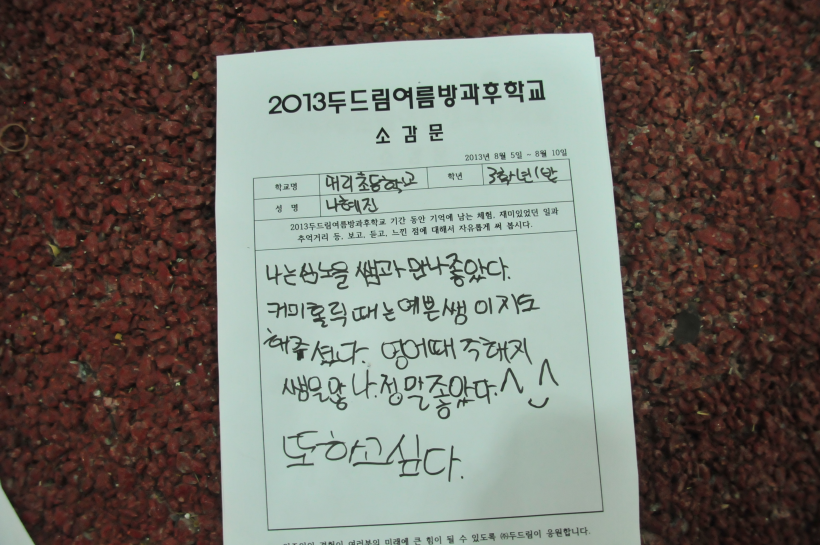 2013두드림여름방과후학교
소 감 문
2013년 8월 5일 ~ 8월 10일
학교명 대리초등학교 학년 3학년1반
성 명 나혜진
2013두드림여름방과후학교 기간 동안 기억에 남는 체험, 재미있었던 일과
추억거리 등, 보고, 듣고, 느낀 점에 대해서 자유롭게 써 봅시다.
나는 쌤과 만나좋았다.
때는 예쁜쌤이 지도
해주셨다. 영어때
쌤을 나. 정말좋았다. ^ ^
또하고싶다.
경험이 여러분의 미래에 큰 힘이 될 수 있도록 ㈜두드림이 응원합니다.